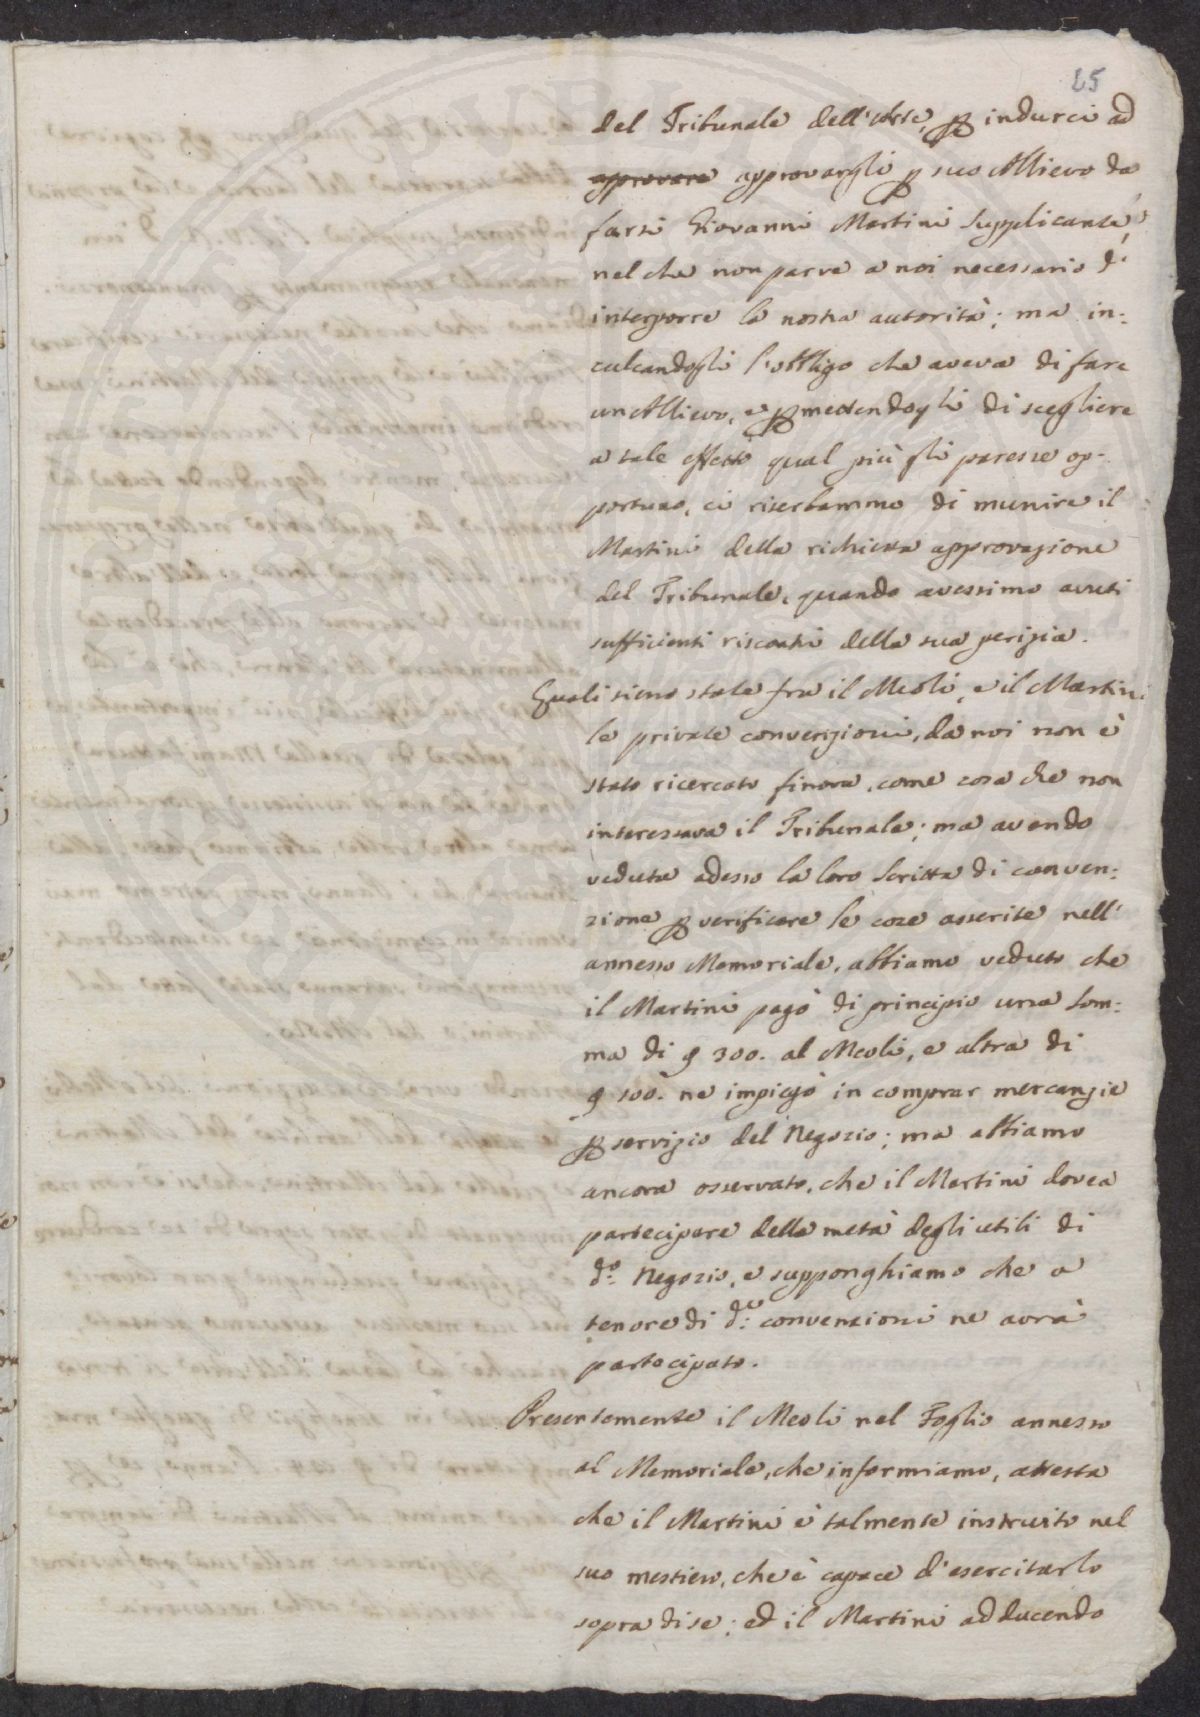 25
del Tribunale dell'Arte, p indurci ad
approvare approvargli p suo Allievo da
farsi Giovanni Martini Supplicante,
nel che non parve a noi necessario di
interporre la nostra autorità; ma in:
culcandogli l'obbligo che aveva di fare
un Allievo, e pmettendogli di scegliere
a tale effetto qual più gli paresse op-
portuno, ci riserbammo di munire il
Martini della richiesta approvazione
del Tribunale, quando avessimo avuti
sufficienti riscontri della sua perizia.
Quali sieno state fra il Meoli, e il Martini
le private convenzioni, da noi non è
stato ricercato finora, come cosa che non
interessava il Tribunale; ma avendo
veduta adesso la loro Scritta di conven:
zione p verificare le cose asserite nell'
annesso Memoriale, abbiamo veduto che
il Martini pagò di principio una som:
ma di 300. al Meoli, e altra di
100. ne impiegò in comprar mercanzie
p servizio del Negozio; ma abbiamo
ancora osservato, che il Martini dovea
partecipare della metà degli utili di
d.º Negozio, e supponghiamo che a
tenore di d.e convenzioni ne avrà
partecipato.
Presentemente il Meoli nel Foglio annesso
al Memoriale, che informiamo, attesta
che il Martini è talmente instruito nel
suo mestiero, che è capace d'esercitarlo
sopra di se; ed il Martini adducendo